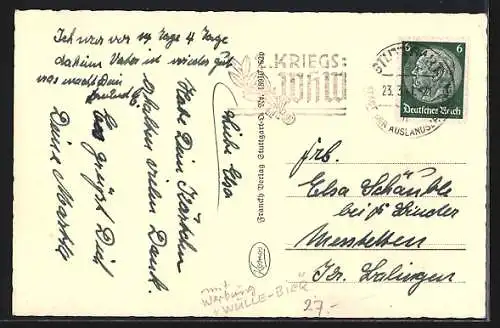 Ich war vor 14 Tage 4 Tage
daheim Vater ist wieder gut
was macht Dein
Liebe Elsa
Habe Dein Kärtchen
erhalten vielen Dank.
Es grüßt Dich
Deine Martha
KRIEGS:
WHW
STUTTGART
23.3
DER AUSLANDSD
6 6
Deutsches Reich
Verlag Stuttgart
Frl.
Elsa Schäuble
bei Linder
Messstetten
Kr. Balingen
mit
Werbung
"WULLE-BIER"
27.-